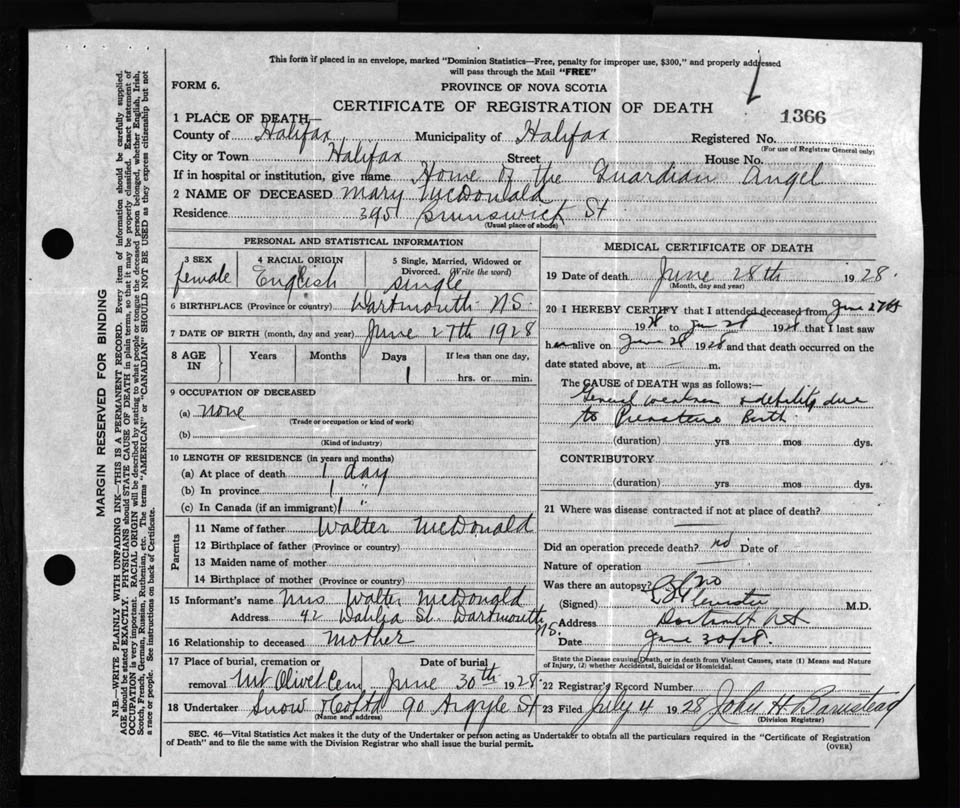 This form if placed in an envelope, marked "Dominion Statistics—Free, penalty for improper use, $300," and properly addressed
will pass through the Mail "FREE"
FORM 6.
PROVINCE OF NOVA SCOTIA
CERTIFICATE OF REGISTRATION OF DEATH
1366
1 PLACE OF DEATH—
County of Halifax Municipality of Halifax Registered No.
(For use of Registrar General only)
City or Town Halifax Street House No.
If in hospital or institution, give name Home of the Guardian Angel
2 NAME OF DECEASED Mary McDonald
Residence 395 Brunswick St
(Usual place of abode)
PERSONAL AND STATISTICAL INFORMATION
3 SEX 4 RACIAL ORIGIN 5 Single, Married, Widowed or
Divorced. (Write the word)
female English single
6 BIRTHPLACE (Province or country) Dartmouth N.S.
7 DATE OF BIRTH (month, day and year) June 27th 1928
8 AGE IN Years Months Days If less than one day,
1 hrs. or min.
9 OCCUPATION OF DECEASED
(a) none
(Trade or occupation or kind of work)
(b)
(Kind of industry)
10 LENGTH OF RESIDENCE (in years and months)
(a) At place of death 1 day
(b) In province 1 "
(c) In Canada (if an immigrant) 1 "
Parents
11 Name of father Walter McDonald
12 Birthplace of father (Province or country)
13 Maiden name of mother
14 Birthplace of mother (Province or country)
15 Informant's name Mrs Walter McDonald
Address 42 Dahlia St. Dartmouth N.S.
16 Relationship to deceased mother
17 Place of burial, cremation or Date of burial
removal Mt Olivet Cem June 30th 1928
18 Undertaker Snow & Co Ltd 90 Argyle St
(Name and address)
MEDICAL CERTIFICATE OF DEATH
19 Date of death June 28th 1928.
(Month, day and year)
20 I HEREBY CERTIFY that I attended deceased from June 27th
1928 to Jun 28 1928 that I last saw
her alive on June 28 1928 and that death occurred on the
date stated above, at m.
The CAUSE of DEATH was as follows:—
General weakness & debility due
to Premature Birth
(duration) yrs mos dys.
CONTRIBUTORY
(duration) yrs mos dys.
21 Where was disease contracted if not at place of death?
Did an operation precede death? no Date of
Nature of operation
Was there an autopsy? no
(Signed) M.D.
Address
Date June 30/28
State the Disease causing Death, or in death from Violent Causes, state (1) Means and Nature
of Injury, (2) whether Accidental, Suicidal or Homicidal.
22 Registrar's Record Number
23 Filed July 4 1928 John H Barnstead
(Division Registrar)
SEC. 46—Vital Statistics Act makes it the duty of the Undertaker or person acting as Undertaker to obtain all the particulars required in the "Certificate of Registration
of Death" and to file the same with the Division Registrar who shall issue the burial permit.
(OVER)
MARGIN RESERVED FOR BINDING
N.B.—WRITE PLAINLY WITH UNFADING INK—THIS IS A PERMANENT RECORD. Every item of information should be carefully supplied.
AGE should be stated EXACTLY. PHYSICIANS should STATE CAUSE OF DEATH in plain terms, so that it may be properly classified. Exact statement of
OCCUPATION is very important. RACIAL ORIGIN will be described by stating to what people or tongue the deceased person belonged, whether English, Irish,
Scotch, French, German, Russian, Ruthenian, etc. The terms "AMERICAN" or "CANADIAN" SHOULD NOT BE USED as they express citizenship but not
a race or people. See instructions on back of Certificate.